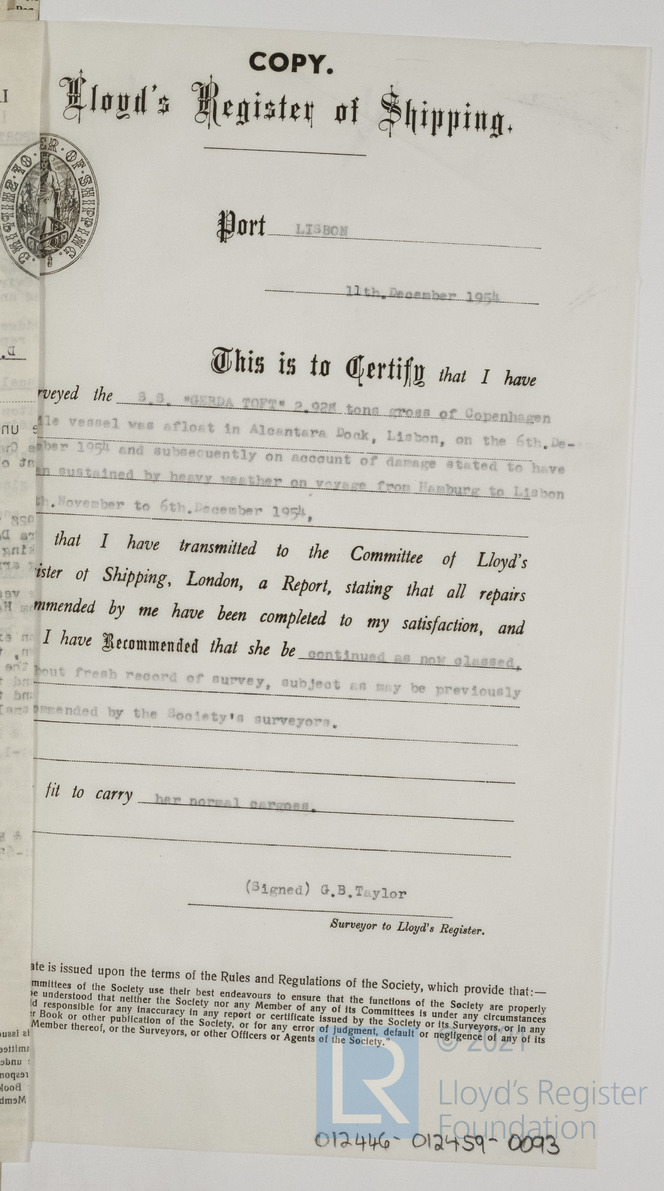 COPY.
Lloyd's Register of Shipping.
Port LISBON
11th. December 1954
This is to Certify that I have
rveyed the S.S. "GERDA TOFT" 2,928 tons gross of Copenhagen
ile vessel was afloat in Alcantara Dock, Lisbon, on the 6th. De-
mber 1954 and subsequently on account of damage stated to have
n sustained by heavy weather on voyage from Hamburg to Lisbon
th. November to 6th. December 1954,
that I have transmitted to the Committee of Lloyd's
ister of Shipping, London, a Report, stating that all repairs
mmended by me have been completed to my satisfaction, and
I have Recommended that she be continued as now classed,
hout fresh record of survey, subject as may be previously
ommended by the Society's surveyors.
fit to carry her normal cargoes.
(Signed) G.B.Taylor
Surveyor to Lloyd's Register.
ate is issued upon the terms of the Rules and Regulations of the Society, which provide that:—
mmittees of the Society use their best endeavours to ensure that the functions of the Society are properly
e understood that neither the Society nor any Member of any of its Committees is under any circumstances
d responsible for any inaccuracy in any report or certificate issued by the Society or its Surveyors, or in any
r Book or other publication of the Society, or for any error of judgment, default or negligence of any of its
Member thereof, or the Surveyors, or other Officers or Agents of the Society."
© 2021
LR
Lloyd's Register
Foundation
012446-012459-0093